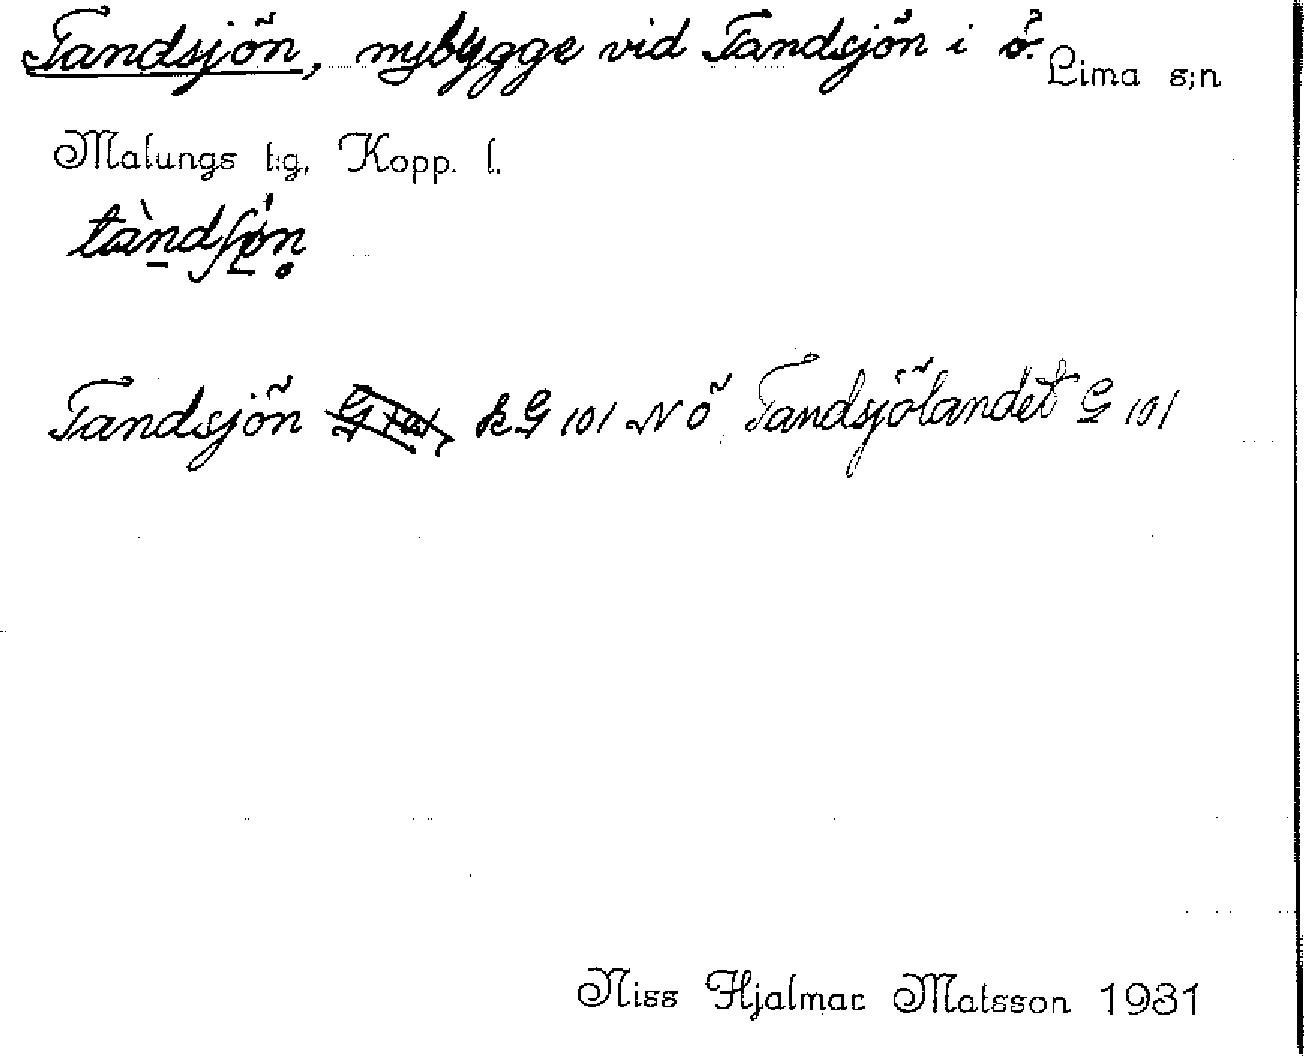 Tandsjön, nybygge vid Tandsjön i ö. Lima s;n
Malungs t:g, Kopp. l.
tàndʃø̀n
Tandsjön kG 101 NÖ Tandsjölandet G 101
Niss Hjalmar Matsson 1931